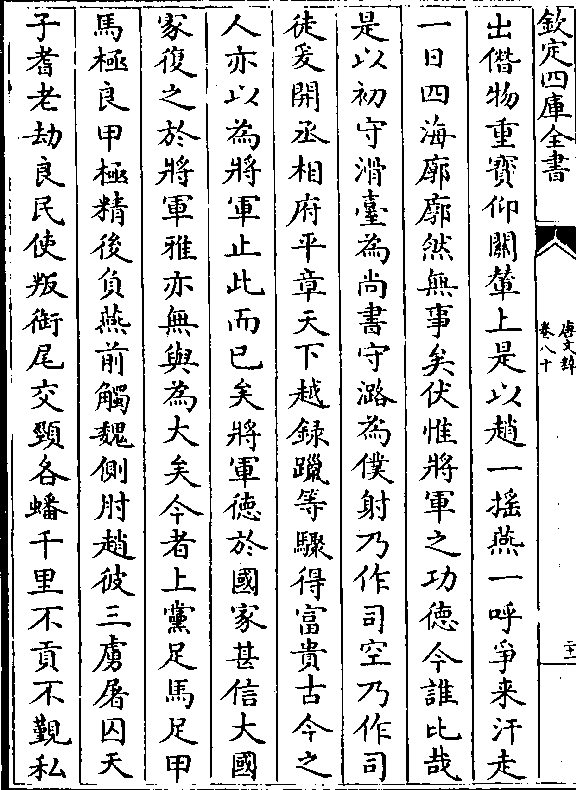 欽定四庫全書
唐文粹
卷八十
二十二
出僭物重寶仰關輦上是以趙一摇燕一呼爭来汗走
一日四海廓廓然無事矣伏惟將軍之功德今誰比哉
是以初守滑臺為尚書守潞為僕射乃作司空乃作司
徒爰開丞相府平章天下越録躐等驟得富貴古今之
人亦以為將軍止此而已矣將軍徳於國家甚信大國
家復之於將軍雅亦無與為大矣今者上黨足馬足甲
馬極良甲極精後負燕前觸魏側肘趙彼三虜屠囚天
子耆老劫良民使叛銜尾交頸各蟠千里不貢不覲私